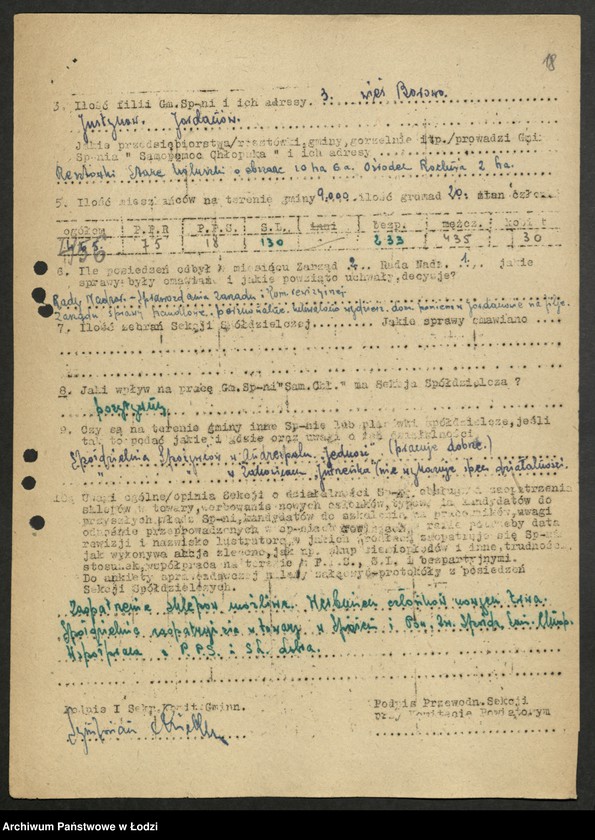 18
3. Ilość filii Gm.Sp-ni i ich adresy. 3. wieś Borowo.
Justynów. Jordanów.
Jakie przedsiębiorstwa/resztówki,gminy,gorzelnie itp./prowadzi Gm
Sp-nia " Samopomoc Chłopska " i ich adresy
Resztówki Stare o obszarze 10 ha 6 a. Ośrodek Rochna 2 ha.
5. Ilość mieszkańców na terenie gminy 9.000 ilość gromad 20. stan człon.
ogółem P.P.R P.P.S. S.L. inni bezp. mężcz. kobiet
75 18 130 233 435 30
6. Ile posiedzeń odbył w miesiącu Zarząd 2. Rada Nadz. 1. jakie
sprawy były omawiane i jakie powzięto uchwały,decyzje?
Rady Nadzor. - Sprawozdania zarządu i Kom rewizyjnej
Zarządu sprawy handlowe, personalne. dom w Jordanowie na filję.
7. Ilość zebrań Sekcji Spółdzielczej Jakie sprawy omawiano
8. Jaki wpływ na pracę Gm.Sp-ni "Sam.Chł." ma Sekcja Spółdzielcza ?
pozytywny
9. Czy są na terenie gminy inne Sp-nie lub placówki spółdzielcze,jeśli
tak to podać jakie i gdzie oraz uwagi o ich działalności
Spółdzielnia Spożywców w Andrespolu "Jedność" (pracuje dobrze.)
" " w "Jutrzenka" (nie wykazuje spec. działalności.
10. Uwagi ogólne/opinia Sekcji o działalności Sp-ni, obsługa, zaopatrzenie
sklepów w towary,werbowanie nowych członków, kandydatów do
przyszłych władz Sp-ni,kandydatów do szkolenia na pracowników,uwagi
odnośnie przeprowadzonych w sp-niach data
rewizji i nazwisko lustratora,w jakich zaopatruje się Sp-nia
jak wykonywa akcje zlecone,jak np. skup ziemiopłodów i inne,trudności
stosunek,współpraca na terenie z P.P.S., S.L. i bezpartyjnymi.
Do ankiety sprawozdawczej należy załączyć protokóły z posiedzeń
Sekcji Spółdzielczych.
Zaopatrzenie sklepów możliwe. Werbunek członków nowych trwa.
Spółdzielnia zaopatruje się w towary w Społem i Pow. Zw. Spółdz. Sam. Chłop.
Współpraca z P.P.S. i S.L. dobra.
Podpis I Sekr.Komit.Gminn. Podpis Przewodn.Sekcji
przy Komitecie Powiatowym
Archiwum Państwowe w Łodzi